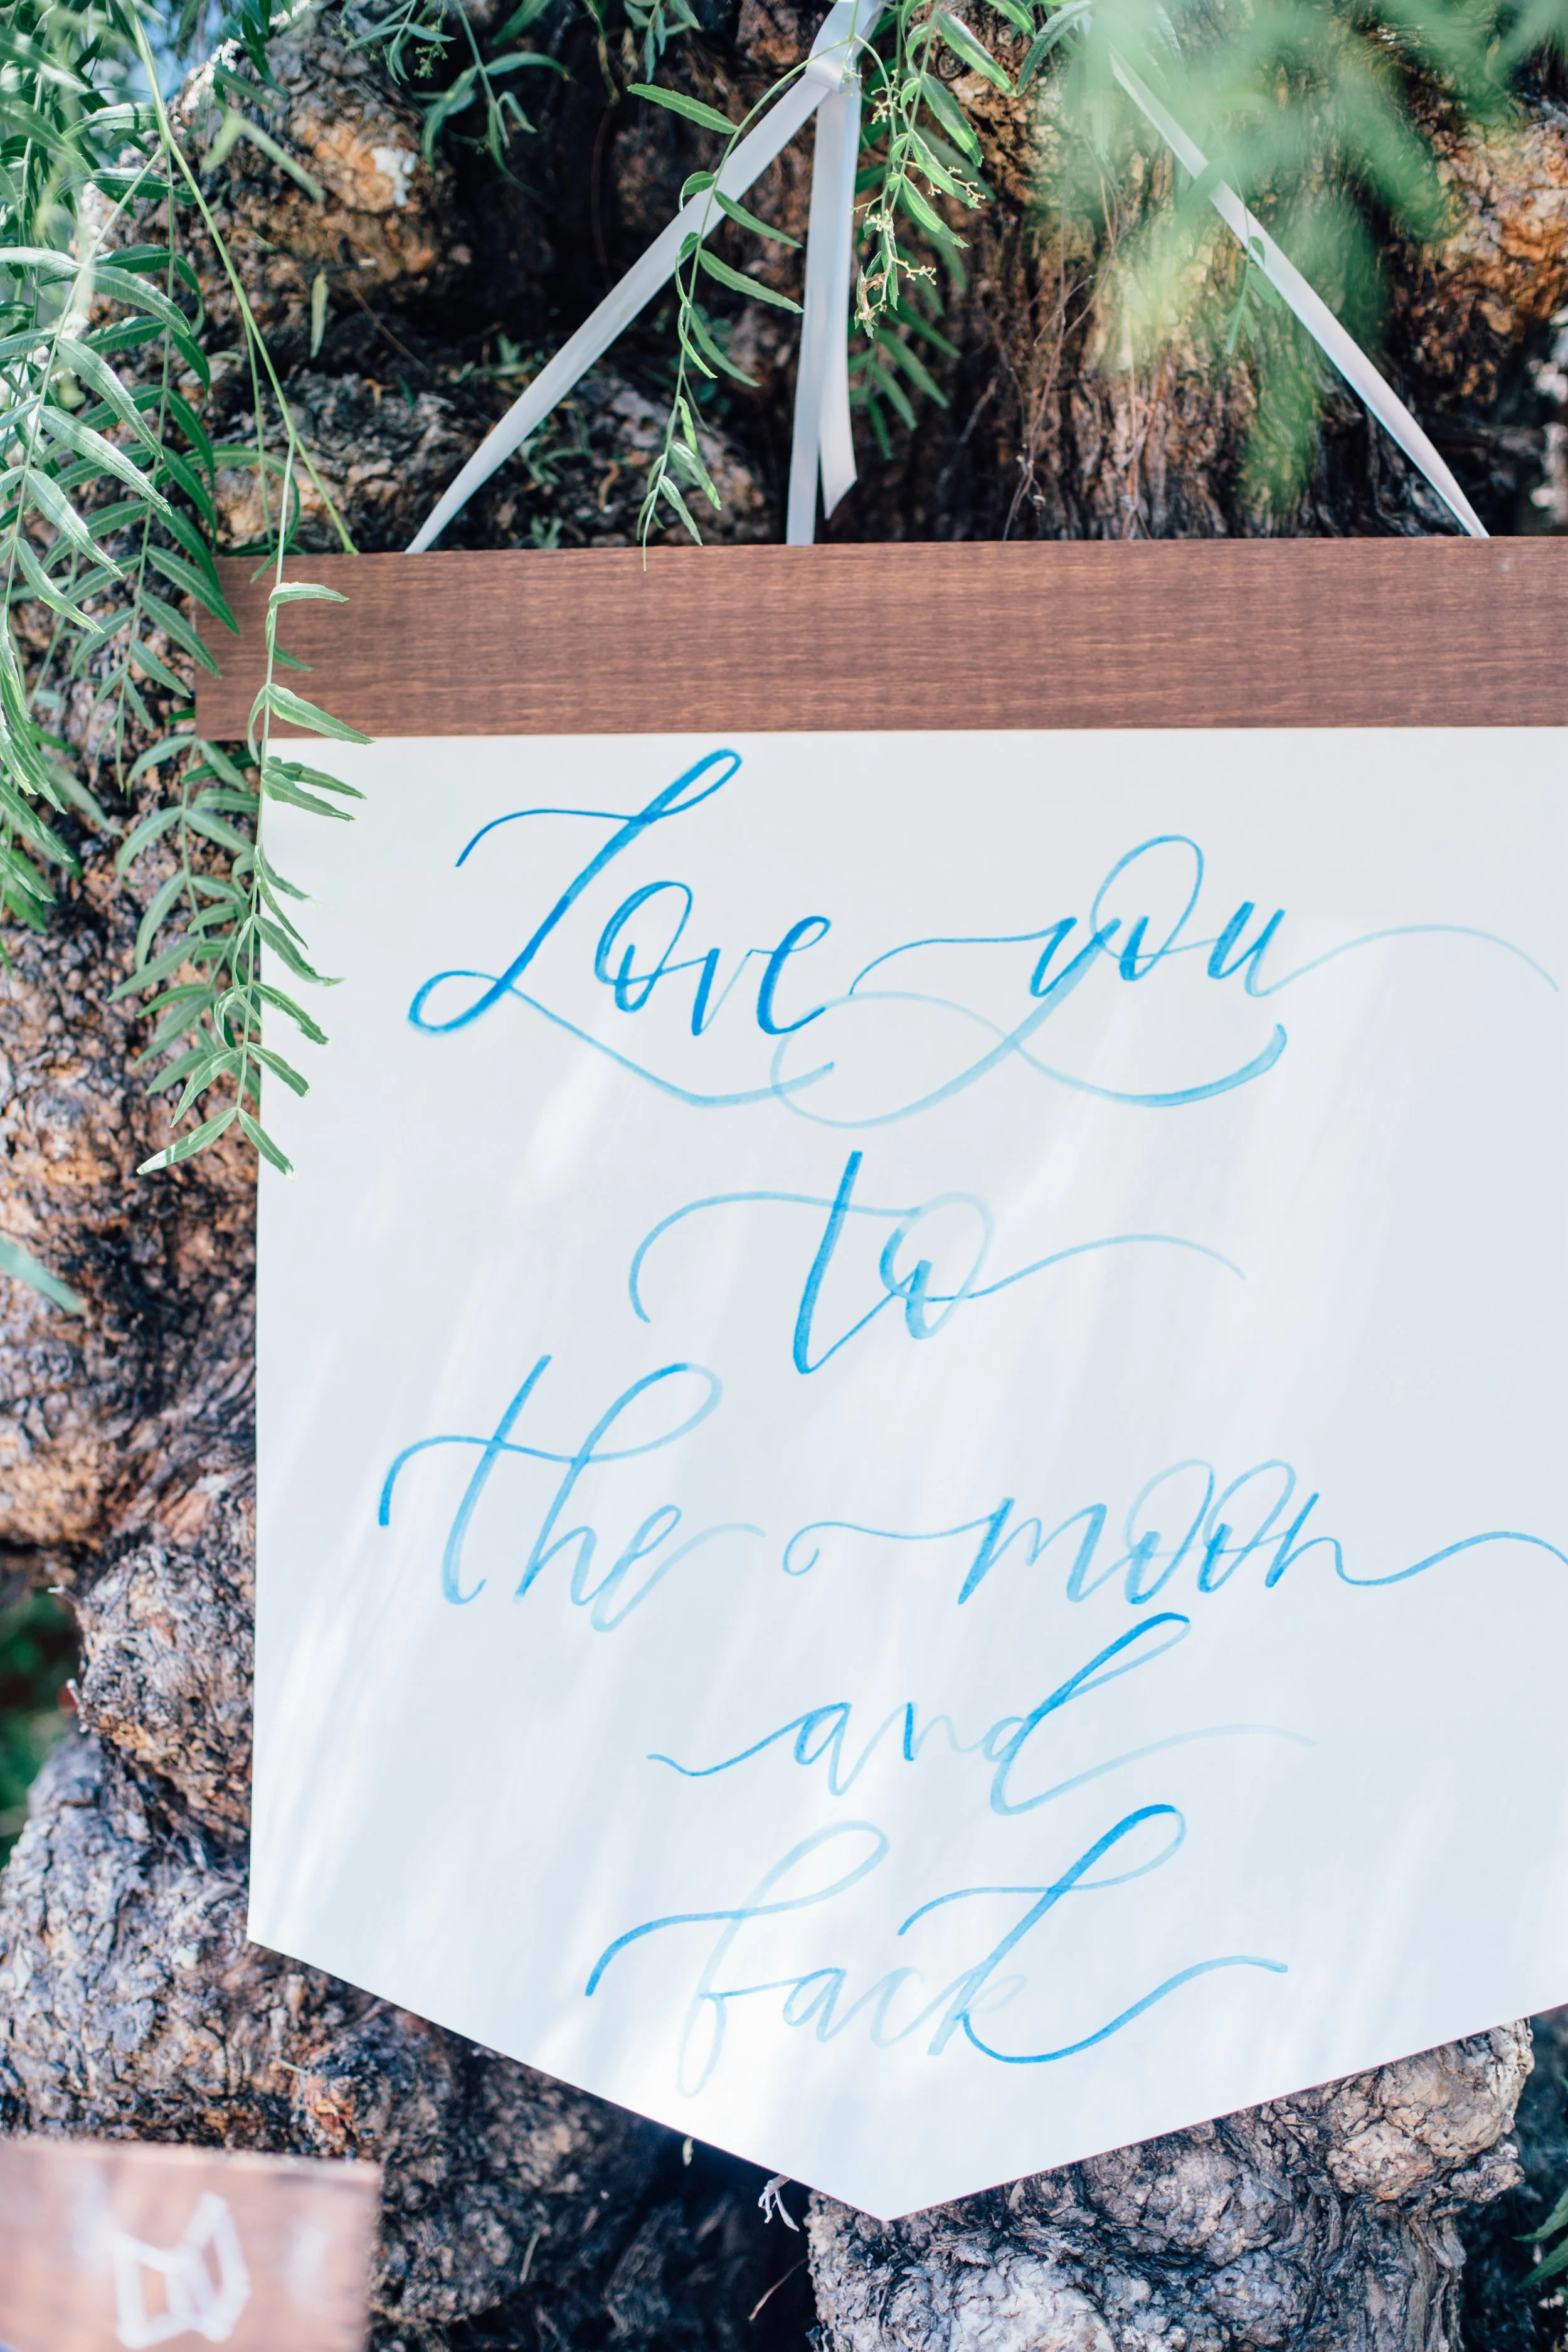 Love you
to
the moon
and
back